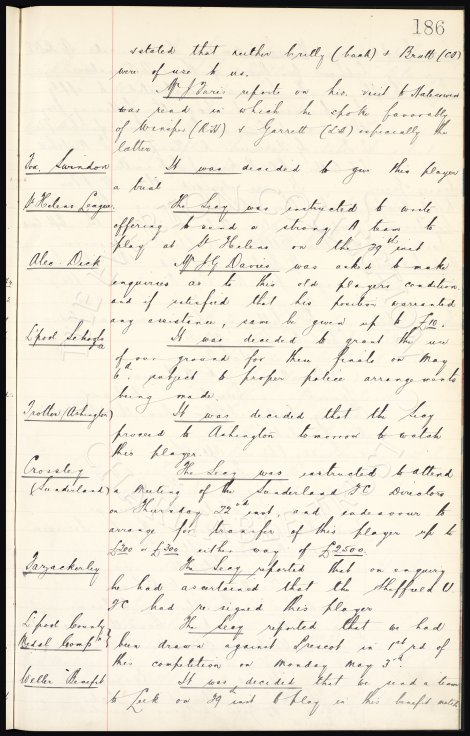 186
stated that neither Critly (back) & Bratt (CH)
were of use to us.
Mr J Faires reports on his visit to Halesowen
was read in which he spoke favorably
of (R.H) & Garrett (I.L) especially the
latter
Swindon It was decided to give this player
a trial
St Helens League. The Secy was instructed to write
offering to send a strong A team to
play at St Helens on the 29th inst
Alec. Dick Mr J G Davies was asked to make
enquiries as to this old players condition
and if satisfied that his position warranted
any assistance, same be given up to £10.
L'pool Schools It was decided to grant the use
of our ground for these finals on May
6th, subject to proper police arrangements
being made.
Trotter (Ashington) It was decided that the Secy
proceed to Ashington tomorrow to watch
this player
Crossley The Secy was instructed to attend
(Sunderland) a meeting of the Sunderland FC Directors
on Thursday 22nd inst, and endeavour to
arrange for transfer of this player up to
£200 or £300 either way of £2500.
Fazackerley The Secy reported that on enquiry
he had ascertained that the Sheffield U.
FC had re-signed this player
L'pool County The Secy reported that we had
Medal Compn } been drawn against Prescot in 1st rd of
this competition on Monday May 3rd
Weller Benefit It was decided that we send a team
to Leek on 29th inst to play in this benefit match